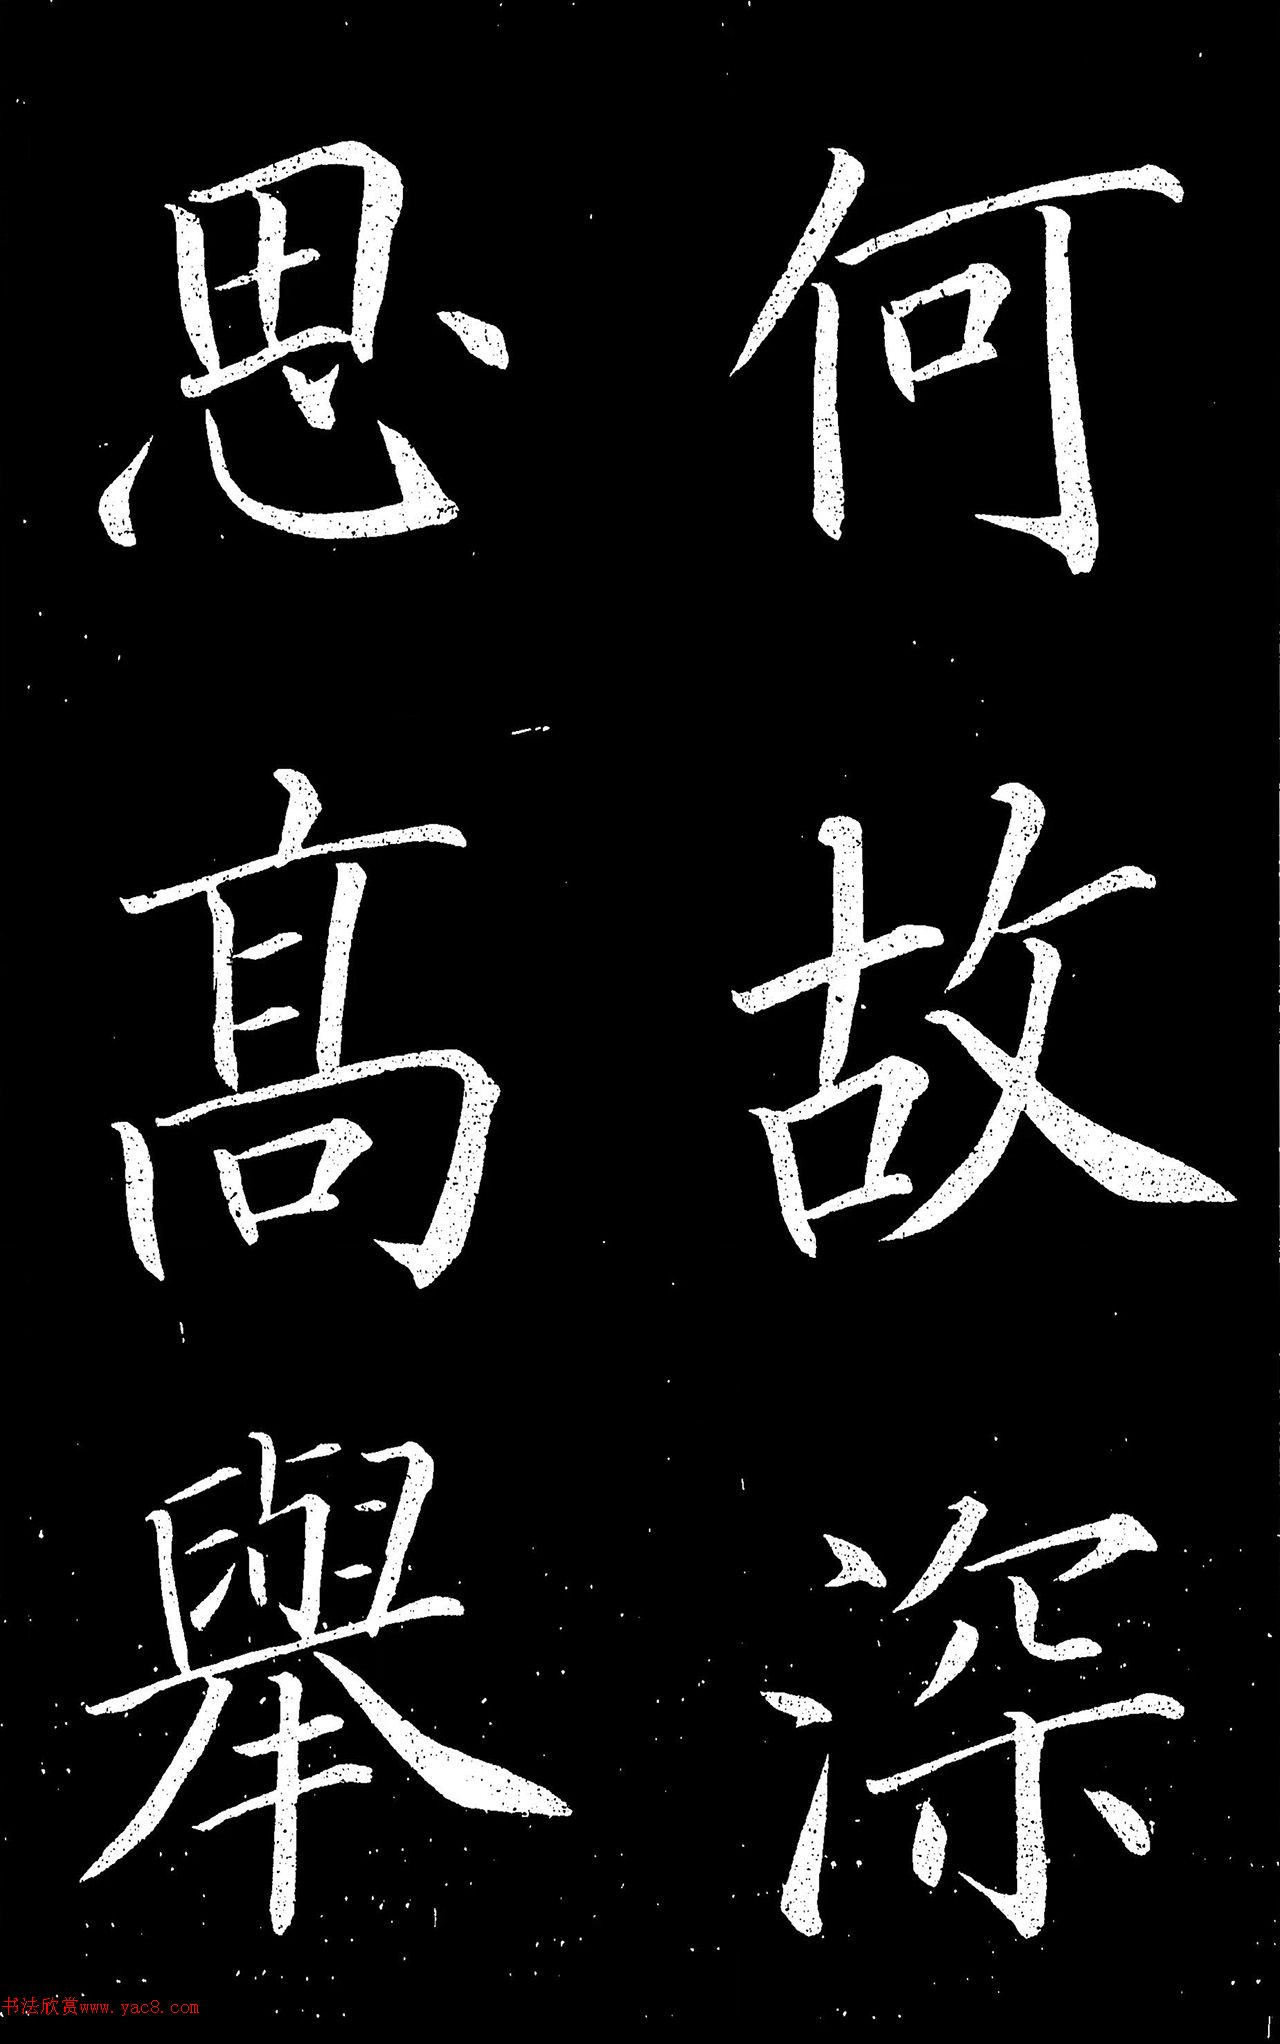 何故深
思髙舉
书法欣赏www.yac8.com